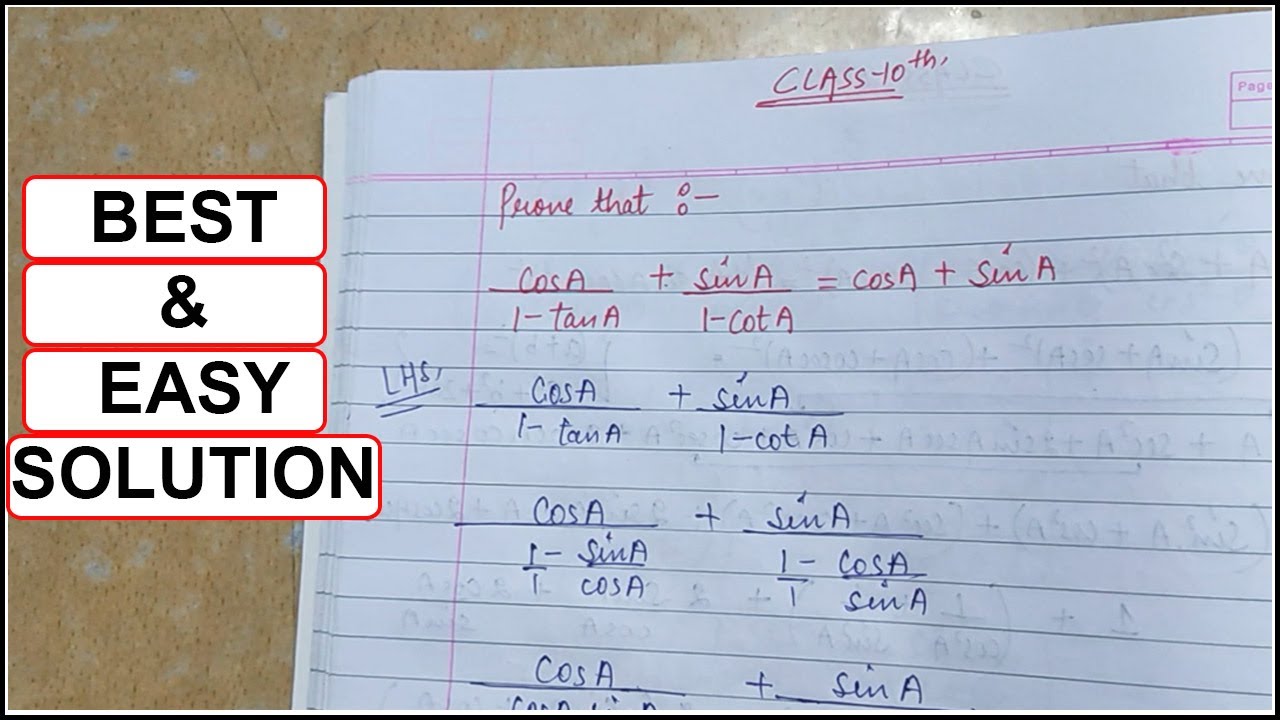 BEST
&
EASY
SOLUTION
CLASS-10th,
Page
Prove that :-
cosA/(1-tanA) + sinA/(1-cotA) = cosA + sinA
LHS, cosA/(1-tanA) + sinA/(1-cotA)
cosA/(1/1 - sinA/cosA) + sinA/(1/1 - cosA/sinA)
cosA + sinA